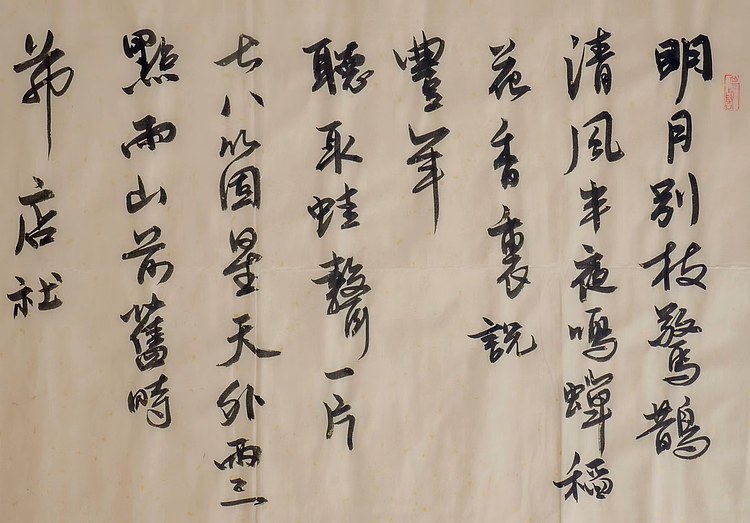 明月別枝驚鵲
清風半夜鳴蟬稻
花香裏說
豐年
聽取蛙聲一片
七八以固星天外兩三
點雨山前舊時
茆店社